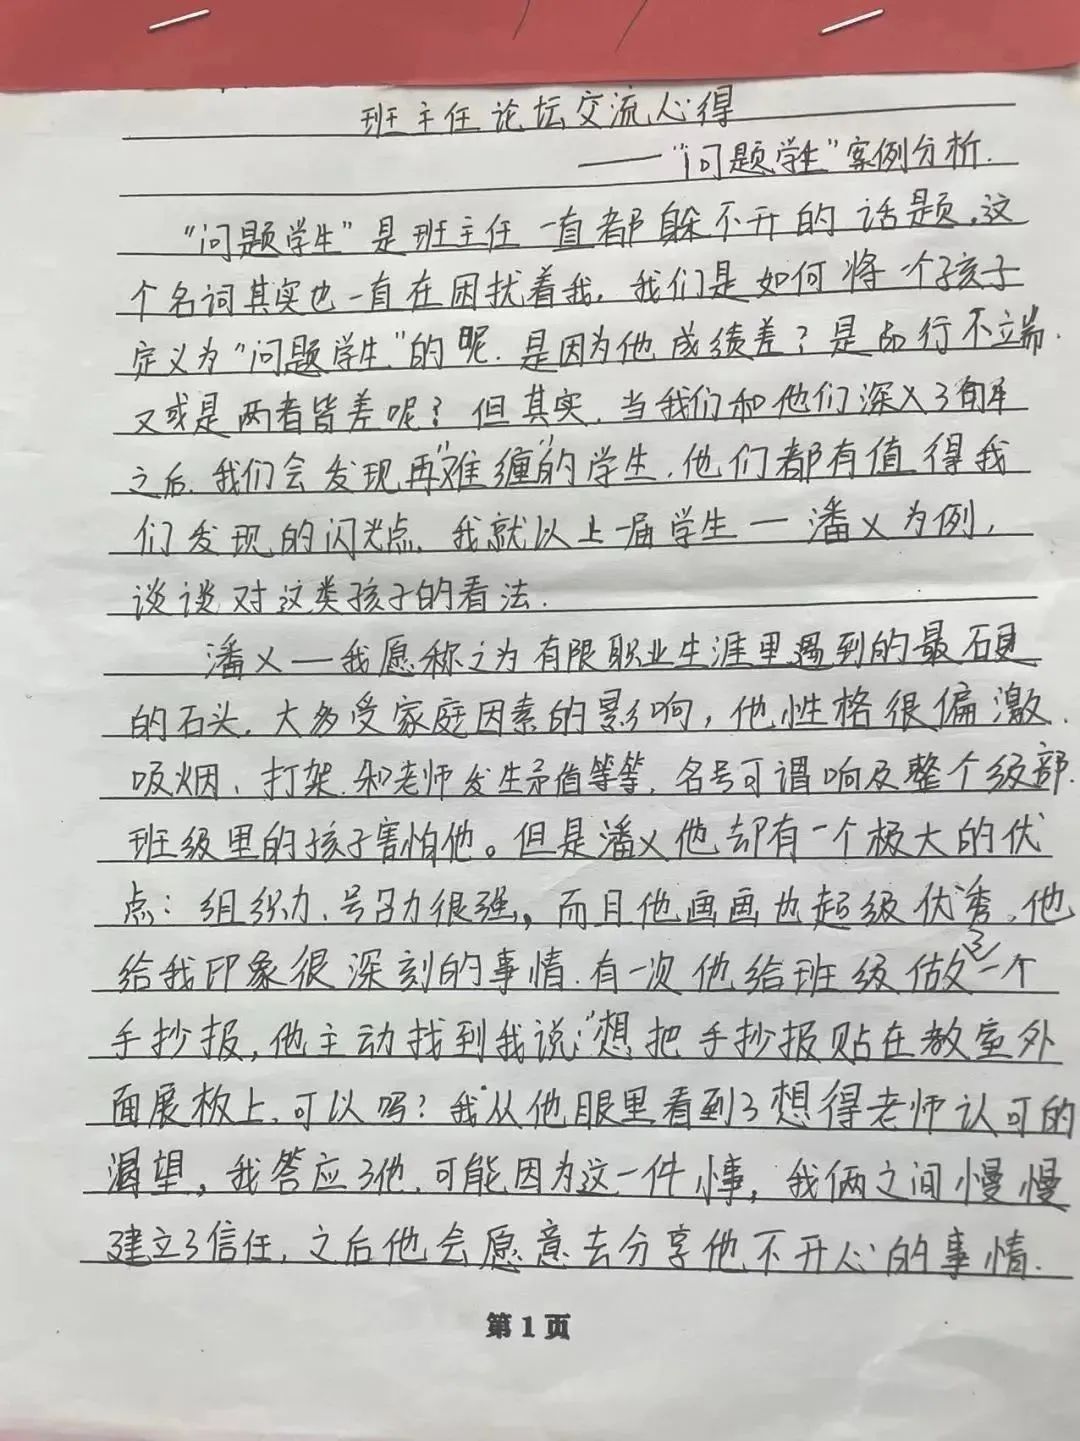 班主任论坛交流心得
——“问题学生”案例分析.
“问题学生”是班主任一直都躲不开的话题,这
个名词其实也一直在困扰着我,我们是如何将一个孩子
定义为“问题学生”的呢.是因为他成绩差?是品行不端.
又或是两者皆差呢?但其实,当我们和他们深入了解
之后,我们会发现再“难缠”的学生,他们都有值得我
们发现的闪光点,我就以上一届学生—潘乂为例,
谈谈对这类孩子的看法.
潘乂—我愿称之为有限职业生涯里遇到的最硬
的石头,大多受家庭因素的影响,他性格很偏激,
吸烟、打架,和老师发生矛盾等等,名号可谓响及整个级部.
班级里的孩子害怕他。但是潘乂他却有一个极大的优
点:组织力、号召力很强,而且他画画也超级优秀,他
给我印象很深刻的事情,有一次他给班级做了一个
手抄报,他主动找到我说:“想把手抄报贴在教室外
面展板上,可以吗?”我从他眼里看到了想得老师认可的
渴望,我答应了他,可能因为这一件事,我俩之间慢慢
建立了信任,之后他会愿意去分享他不开心的事情.
第1页